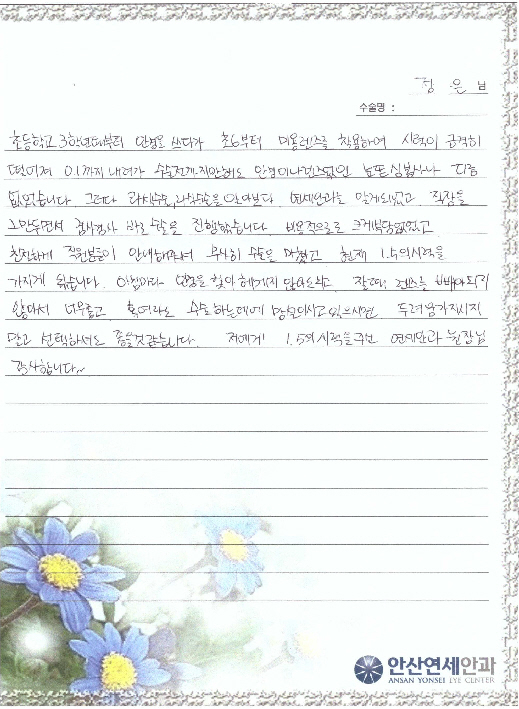 정 은 님
수술명 :
초등학교 3학년때부터 안경을 쓰다가 초6부터 미용렌즈를 착용하여 시력이 급격히
떨어져 0.1까지 내려가 수술전까지만해도 안경이나 렌즈없인 눈뜬 심봉사나 다름
없었습니다. 그러다 라식수술, 라섹수술을 알아보다 연세안과를 알게되었고 직장을
그만두면서 검사하자 바로 수술을 진행했습니다. 비용적으로도 크게 부담없었고
친절하게 직원분들이 안내해주셔서 무사히 수술을 마쳤고 현재 1.5의 시력을
가지게 됐습니다. 아침마다 안경을 찾아 헤매지 않아도되고 잘때 렌즈를 빼야되지
않아서 너무좋고 혹여라도 수술하는데에 망설이시고 있으시면 두려움가지시지
말고 선택하셔도 좋을것같습니다. 저에게 1.5의 시력을 주신 연세안과 원장님
감사합니다~
안산연세안과
ANSAN YONSEI EYE CENTER